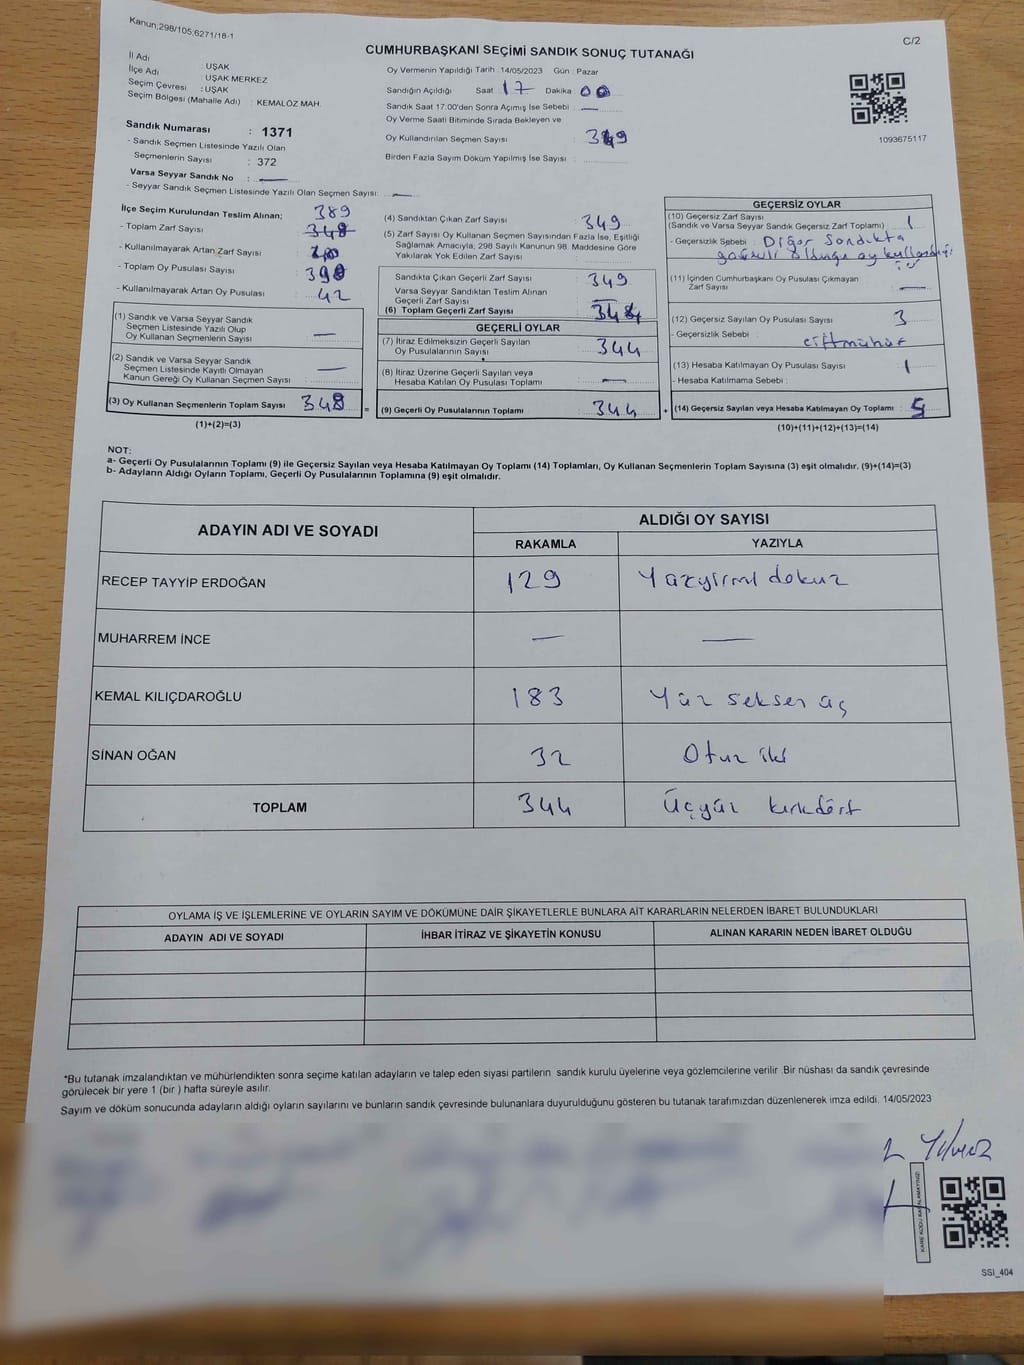 Kanun;298/105;6271/18-1
C/2
CUMHURBAŞKANI SEÇİMİ SANDIK SONUÇ TUTANAĞI
İl Adı : UŞAK
İlçe Adı : UŞAK MERKEZ
Seçim Çevresi : UŞAK
Seçim Bölgesi (Mahalle Adı) : KEMALÖZ MAH.
Sandık Numarası : 1371
- Sandık Seçmen Listesinde Yazılı Olan
Seçmenlerin Sayısı : 372
Varsa Seyyar Sandık No : —
- Seyyar Sandık Seçmen Listesinde Yazılı Olan Seçmen Sayısı: —
Oy Vermenin Yapıldığı Tarih :14/05/2023 Gün : Pazar
Sandığın Açıldığı Saat 17 Dakika 00
Sandık Saat 17:00'den Sonra Açımış İse Sebebi —
Oy Verme Saati Bitiminde Sırada Bekleyen ve
Oy Kullandırılan Seçmen Sayısı : 349
Birden Fazla Sayım Döküm Yapılmış İse Sayısı :
1093675117
İlçe Seçim Kurulundan Teslim Alınan; 389
- Toplam Zarf Sayısı : 348
- Kullanılmayarak Artan Zarf Sayısı :
- Toplam Oy Pusulası Sayısı : 390
- Kullanılmayarak Artan Oy Pusulası : 42
(1) Sandık ve Varsa Seyyar Sandık
Seçmen Listesinde Yazılı Olup
Oy Kullanan Seçmenlerin Sayısı : —
(2) Sandık ve Varsa Seyyar Sandık
Seçmen Listesinde Kayıtlı Olmayan
Kanun Gereği Oy Kullanan Seçmen Sayısı : —
(3) Oy Kullanan Seçmenlerin Toplam Sayısı 348
(1)+(2)=(3)
(4) Sandıktan Çıkan Zarf Sayısı : 349
(5) Zarf Sayısı Oy Kullanan Seçmen Sayısından Fazla İse, Eşitliği
Sağlamak Amacıyla; 298 Sayılı Kanunun 98. Maddesine Göre
Yakılarak Yok Edilen Zarf Sayısı :
Sandıkta Çıkan Geçerli Zarf Sayısı : 349
Varsa Seyyar Sandıktan Teslim Alınan
Geçerli Zarf Sayısı : —
(6) Toplam Geçerli Zarf Sayısı : 348
GEÇERLİ OYLAR
(7) İtiraz Edilmeksizin Geçerli Sayılan
Oy Pusulalarının Sayısı : 344
(8) İtiraz Üzerine Geçerli Sayılan veya
Hesaba Katılan Oy Pusulası Toplamı : —
= (9) Geçerli Oy Pusulalarının Toplamı : 344 +
GEÇERSİZ OYLAR
(10) Geçersiz Zarf Sayısı
(Sandık ve Varsa Seyyar Sandık Geçersiz Zarf Toplamı) : 1
- Geçersizlik Sebebi : Diğer Sandıkta
görevli olduğu oy kullandığı
için
(11) İçinden Cumhurbaşkanı Oy Pusulası Çıkmayan
Zarf Sayısı : —
(12) Geçersiz Sayılan Oy Pusulası Sayısı : 3
- Geçersizlik Sebebi : çift mühür
(13) Hesaba Katılmayan Oy Pusulası Sayısı : 1
- Hesaba Katılmama Sebebi :
(14) Geçersiz Sayılan veya Hesaba Katılmayan Oy Toplamı : 5
(10)+(11)+(12)+(13)=(14)
NOT:
a- Geçerli Oy Pusulalarının Toplamı (9) ile Geçersiz Sayılan veya Hesaba Katılmayan Oy Toplamı (14) Toplamları, Oy Kullanan Seçmenlerin Toplam Sayısına (3) eşit olmalıdır. (9)+(14)=(3)
b- Adayların Aldığı Oyların Toplamı, Geçerli Oy Pusulalarının Toplamına (9) eşit olmalıdır.
ADAYIN ADI VE SOYADI
ALDIĞI OY SAYISI
RAKAMLA YAZIYLA
RECEP TAYYİP ERDOĞAN 129 Yüzyirmi dokuz
MUHARREM İNCE — —
KEMAL KILIÇDAROĞLU 183 Yüz seksen üç
SİNAN OĞAN 32 Otuz iki
TOPLAM 344 Üçyüz kırkdört
OYLAMA İŞ VE İŞLEMLERİNE VE OYLARIN SAYIM VE DÖKÜMÜNE DAİR ŞİKAYETLERLE BUNLARA AİT KARARLARIN NELERDEN İBARET BULUNDUKLARI
ADAYIN ADI VE SOYADI İHBAR İTİRAZ VE ŞİKAYETİN KONUSU ALINAN KARARIN NEDEN İBARET OLDUĞU
*Bu tutanak imzalandıktan ve mühürlendikten sonra seçime katılan adayların ve talep eden siyasi partilerin sandık kurulu üyelerine veya gözlemcilerine verilir .Bir nüshası da sandık çevresinde
görülecek bir yere 1 (bir ) hafta süreyle asılır.
Sayım ve döküm sonucunda adayların aldığı oyların sayılarını ve bunların sandık çevresinde bulunanlara duyurulduğunu gösteren bu tutanak tarafımızdan düzenlenerek imza edildi. 14/05/2023
Yılmaz
KARE KODU KARALAMAYINIZ!
SSI_404